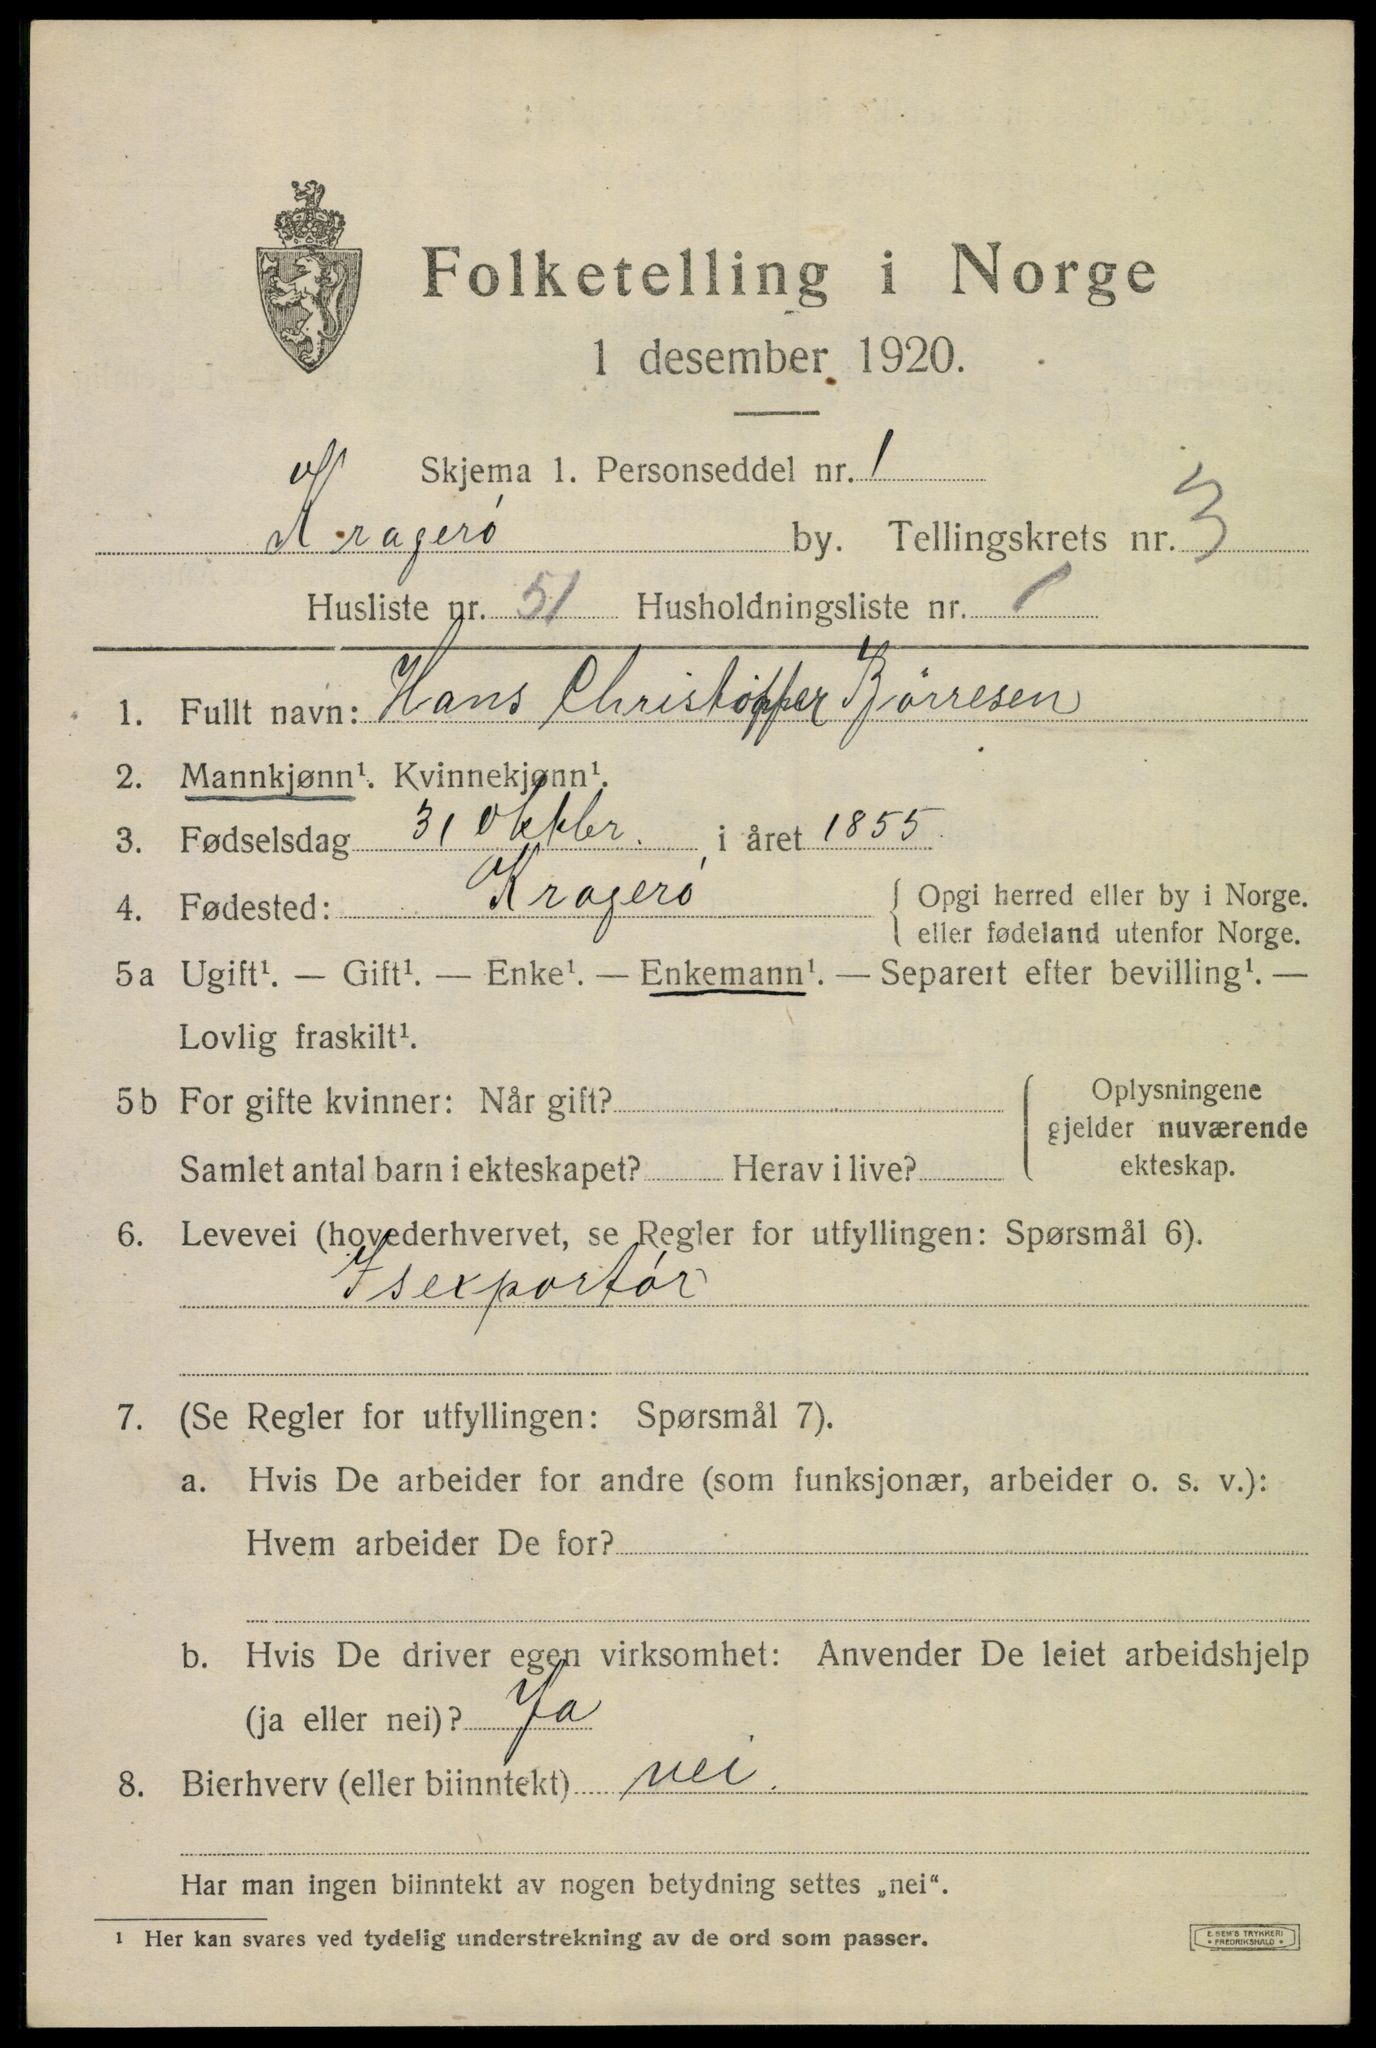 Folketelling i Norge
1 desember 1920.
Skjema 1. Personseddel nr. 1
Kragerø by. Tellingskrets nr. 3
Husliste nr. 51 Husholdningsliste nr. 1
1. Fullt navn: Hans Christoffer Börresen
2. Mannkjønn¹. Kvinnekjønn¹.
3. Fødselsdag 31 Oktbr. i året 1855.
4. Fødested: Kragerø { Opgi herred eller by i Norge.
eller fødeland utenfor Norge.
5a Ugift¹. — Gift¹. — Enke¹. — Enkemann¹. — Separert efter bevilling¹. —
Lovlig fraskilt¹.
5b For gifte kvinner: Når gift?
Samlet antal barn i ekteskapet? Herav i live?
Oplysningene
gjelder nuværende
ekteskap.
6. Levevei (hovederhvervet, se Regler for utfyllingen: Spørsmål 6).
Isexportör
7. (Se Regler for utfyllingen: Spørsmål 7).
a. Hvis De arbeider for andre (som funksjonær, arbeider o. s. v.):
Hvem arbeider De for?
b. Hvis De driver egen virksomhet: Anvender De leiet arbeidshjelp
(ja eller nei)? Ja
8. Bierhverv (eller biinntekt) nei.
Har man ingen biinntekt av nogen betydning settes „nei“.
¹ Her kan svares ved tydelig understrekning av de ord som passer.
E. SEM'S TRYKKERI
• FREDRIKSHALD •